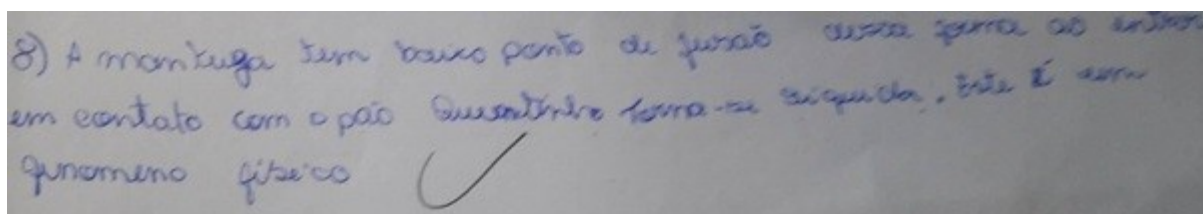 8) A manteiga tem baixo ponto de fusão dessa forma ao entrar
em contato com o pão Quentinho torna-se liquida. Este é um
fenomeno físico